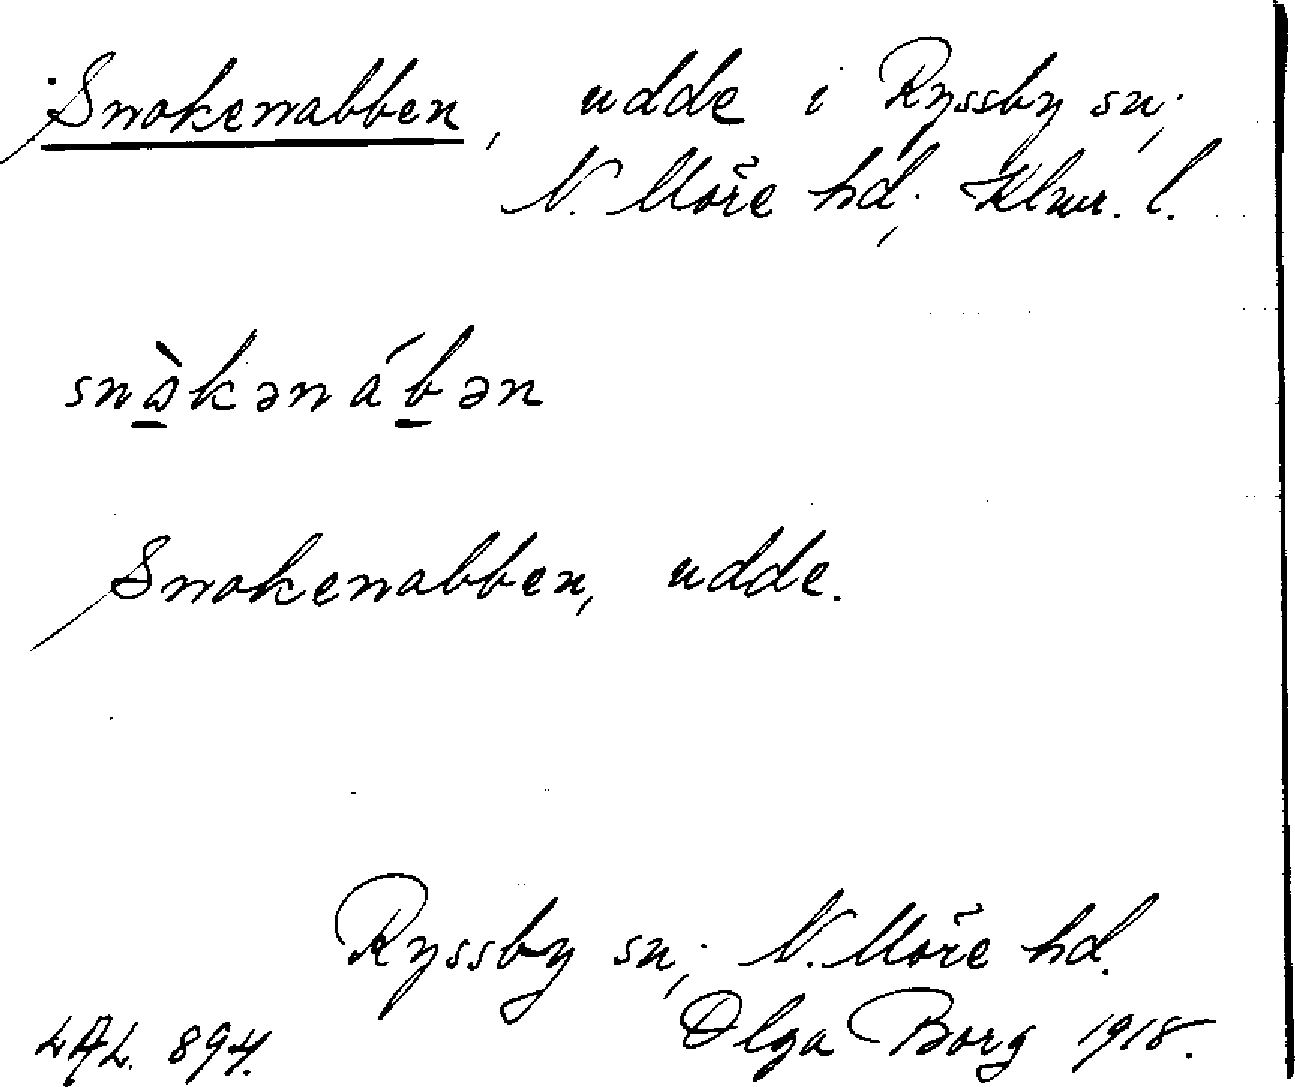 Snokenabben, udde i Ryssby sn;
N. Möre hd; Klmr. l.
snòkənábən
Snokenabben, udde.
Ryssby sn; N. Möre hd.
LAL. 894. Olga Borg 1918.